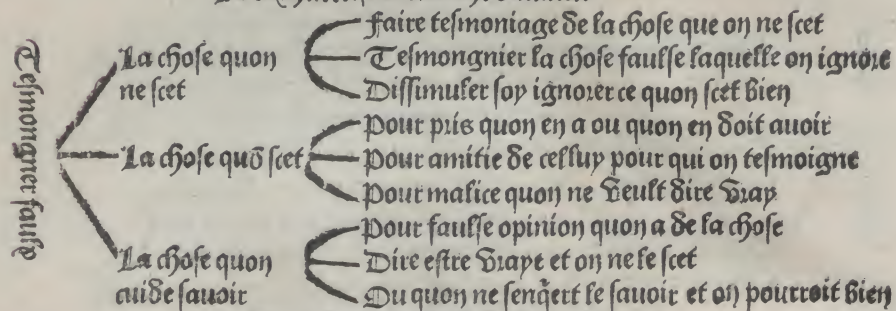 Teſmongner faulx
La choſe quon
ne ſcet
Faire teſmoniage de la choſe que on ne ſcet
Teſmongnier la choſe faulſe laquelle on ignore
Diſſimuler ſoy ignorer ce quon ſcet bien
La choſe quō ſcet
Pour pris quon en a ou quon en doit auoir
Pour amitie de celluy pour qui on teſmoigne
Pour malice quon ne veult dire vray
La choſe quon
cuide ſauoir
Pour faulſe opinion quon a de la choſe
Dire eſtre vraye et on ne le ſcet
Ou quon ne ſenq̄ert le ſauoir et on pourroit bien